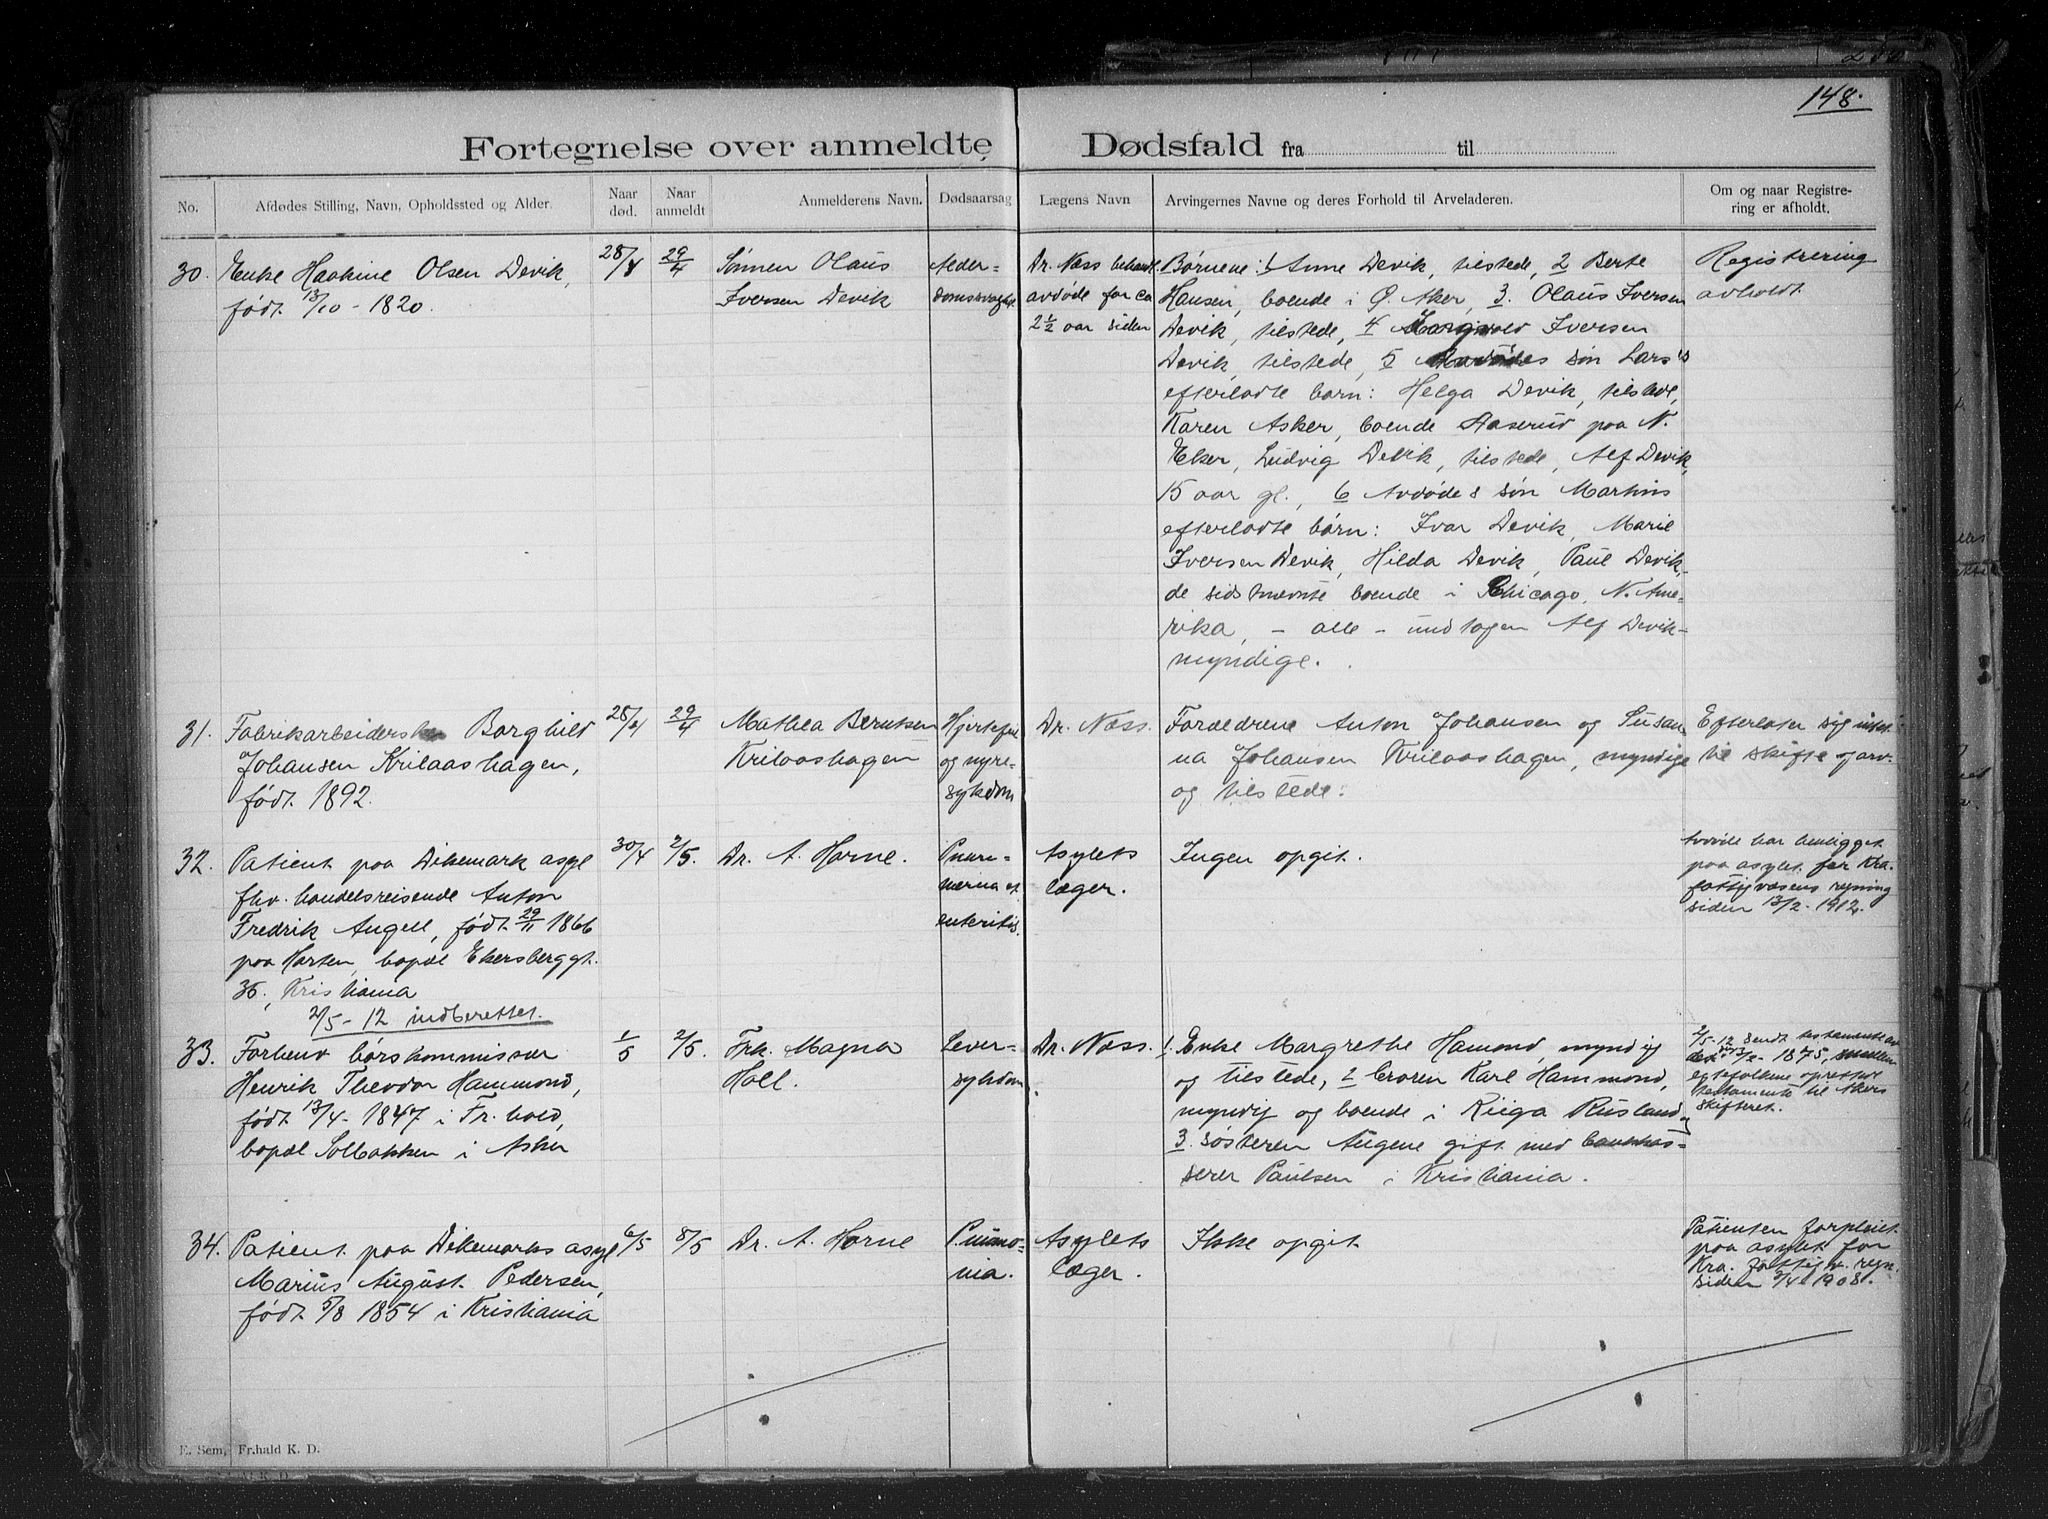 148.
Fortegnelse over anmeldte Dødsfald fra til
No.
Afdødes Stilling, Navn, Opholdssted og Alder.
Naar død.
Naar anmeldt
Anmelderens Navn.
Dødsaarsag
Lægens Navn
Arvingernes Navne og deres Forhold til Arveladeren.
Om og naar Registre-
ring er afholdt.
30.
Enke Haakine Olsen Devik,
født 13/10 - 1820.
28/4
29/4
Sönnen Olaus
Iversen Devik
Alder-
domssvaghet
Dr. Næss behandl.
avdøde for ca
2 1/2 aar siden
Børnene: 1 Anne Devik, tilstede, 2 Berte
Hansen, boende i Ø. Aker, 3. Olaus Iversen
Devik, tilstede, 4 Iversen
Devik, tilstede, 5 Avdødes søn Lars's
efterladte barn: Helga Devik, tilstede,
Karen Asker, boende Aaserud paa N.
Eker, Ludvig Devik, tilstede, Alf Devik,
15 aar gl., 6 Avdødes søn Martins
efterladte børn: Ivar Devik, Marie
Iversen Devik, Hilda Devik, Paul Devik,
de sidstnævnte boende i Chicago, N. Ame-
rika, - alle - undtagen Alf Devik -
myndige.
Registrering
avholdt
31.
Fabrikarbeiderske Borghild
Johansen Krilaashagen,
født 1892.
28/4
29/4
Mathea Berntsen
Krilaashagen
Hjertefeil
og nyre-
sykdom
Dr. Næss.
Forældrene Anton Johansen og Susan-
na Johansen Krilaashagen, myndige
og tilstede.
Efterlater sig intet
til skifte og arv.
32.
Patient paa Dikemark asyl
fhv. handelsreisende Anton
Fredrik Angell, født 29/11 1866
paa Horten, bopæl Ekersberggt.
36, Kristiania
2/5 - 12 indberettet.
30/4
2/5.
Dr. A. Horne.
enteritis.
Asylets
læger.
Ingen opgit.
Avdøde har henligget
paa asylet for Kra.
fattigvæsens regning
siden 13/2 - 1912.
33.
Forhenv børskommissær
Henrik Theodor Hammond,
født 13/4 - 1847 i Fr.hald,
bopæl Solbakken i Asker
1/5
2/5.
Frk. Magna
Holl.
Lever-
sykdom
Dr. Næss.
1. Enke Margrethe Hamond, myndig
og tilstede, 2 broren Karl Hammond,
myndig og boende i Riiga Rusland og
3. søsteren Augene gift med bankkas-
serer Paulsen i Kristiania.
2/5-12 sendt testamente av
1875, mellem
egtefolkene oprettet
testamente til Akers
skifteret.
34.
Patient paa Dikemarks asyl
Marius August Pedersen,
født 5/8 1854 i Kristiania
6/5
8/5
Dr. A. Horne
Pnumo-
nia.
Asylets
læger.
Ikke opgit
Patienten forpleiet
paa asylet for
Kra. fattigv. regn.
siden 2/4 1908.
E. Sem, Fr.hald K. D.